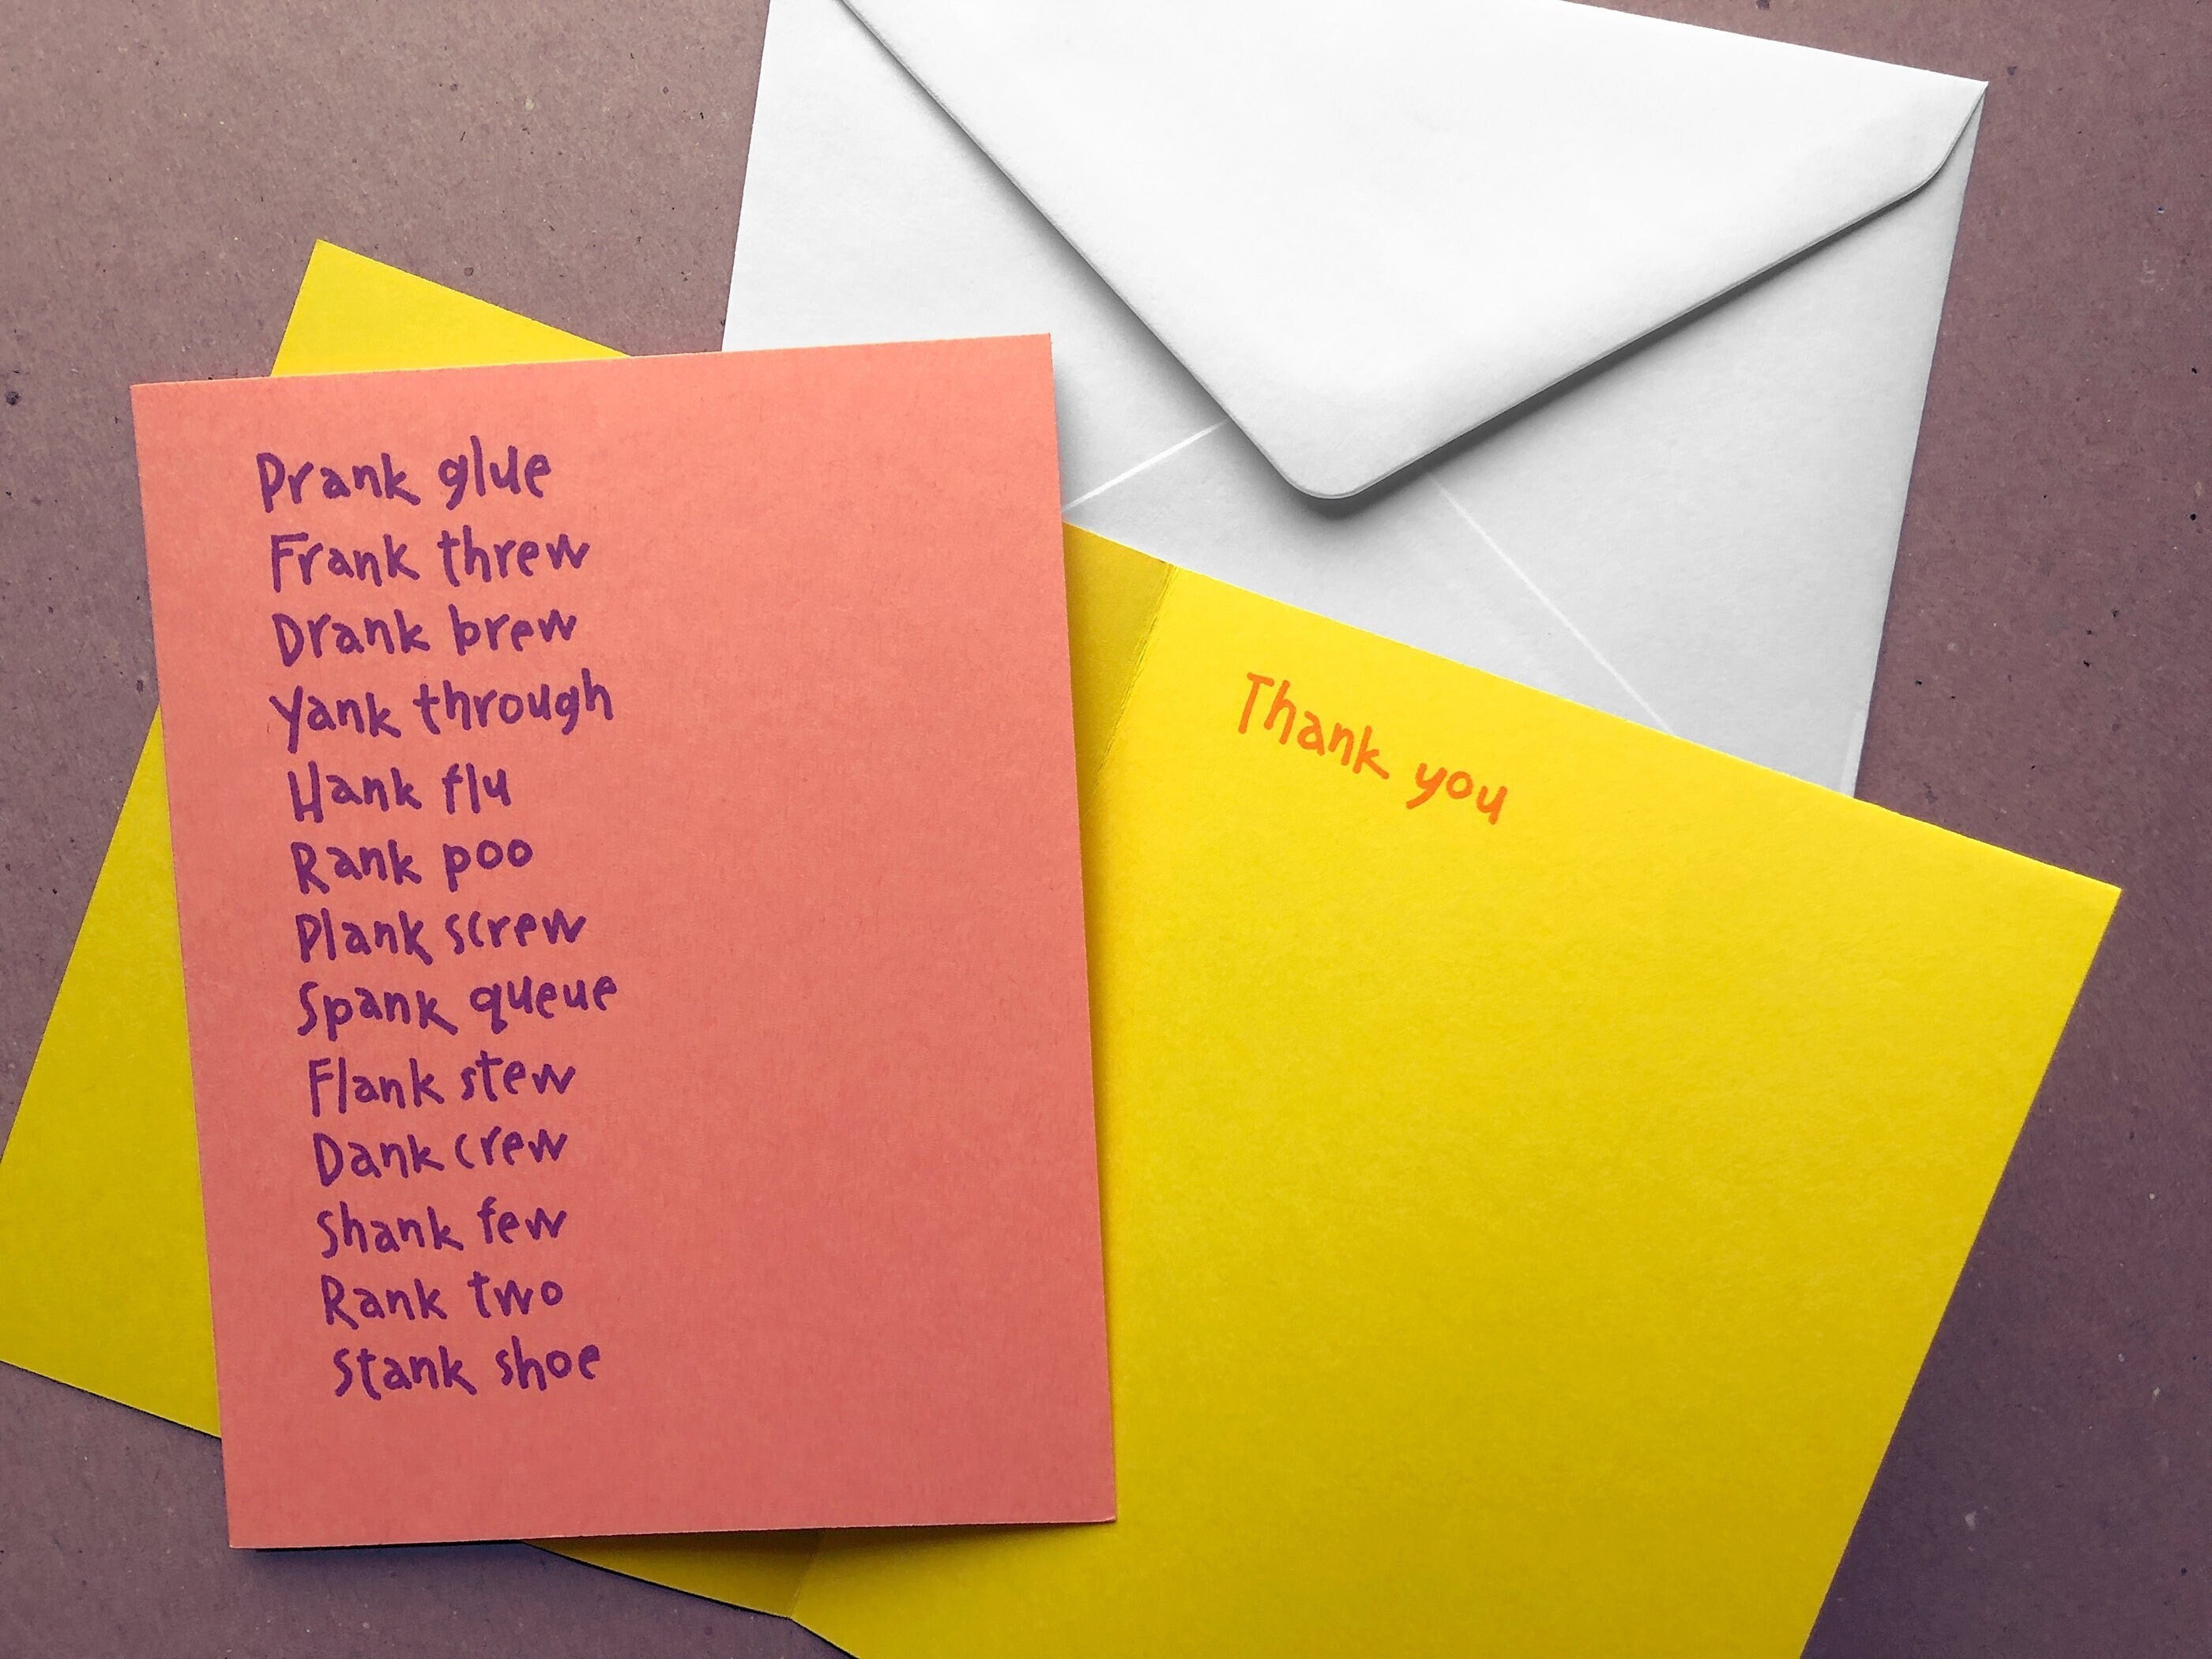 Prank glue
Frank threw
Drank brew
Yank through
Hank flu
Rank poo
Plank screw
Spank queue
Flank stew
Dank crew
Shank few
Rank two
Stank shoe
Thank you